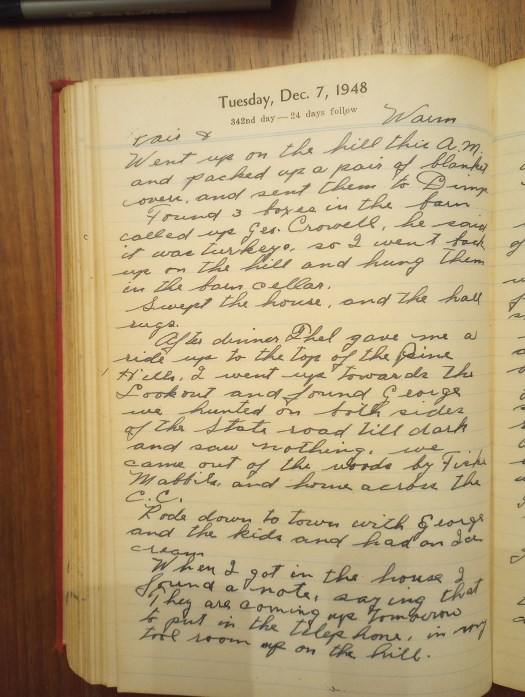 Tuesday, Dec. 7, 1948
342nd day — 24 days follow
Fair & Warm
Went up on the hill this A.M.
and packed up a pair of blanket
covers, and sent them to Dimp
Found 3 boxes in the barn
called up Geo. Crowell, he said
it was turkeys, so I went back
up on the hill and hung them
in the barn cellar.
Swept the house, and the hall
rugs.
After dinner Thel gave me a
ride up to the top of the Pine
Hills, I went up towards the
Lookout and found George
we hunted on both sides
of the State road till dark
and saw nothing, we
came out of the woods by
and home across the
C.C.
Rode down to town with George
and the kids and had an Ice
cream
When I got in the house I
found a note, saying that
They are coming up tomorrow
to put in the telephone, in my
tool room up on the hill.